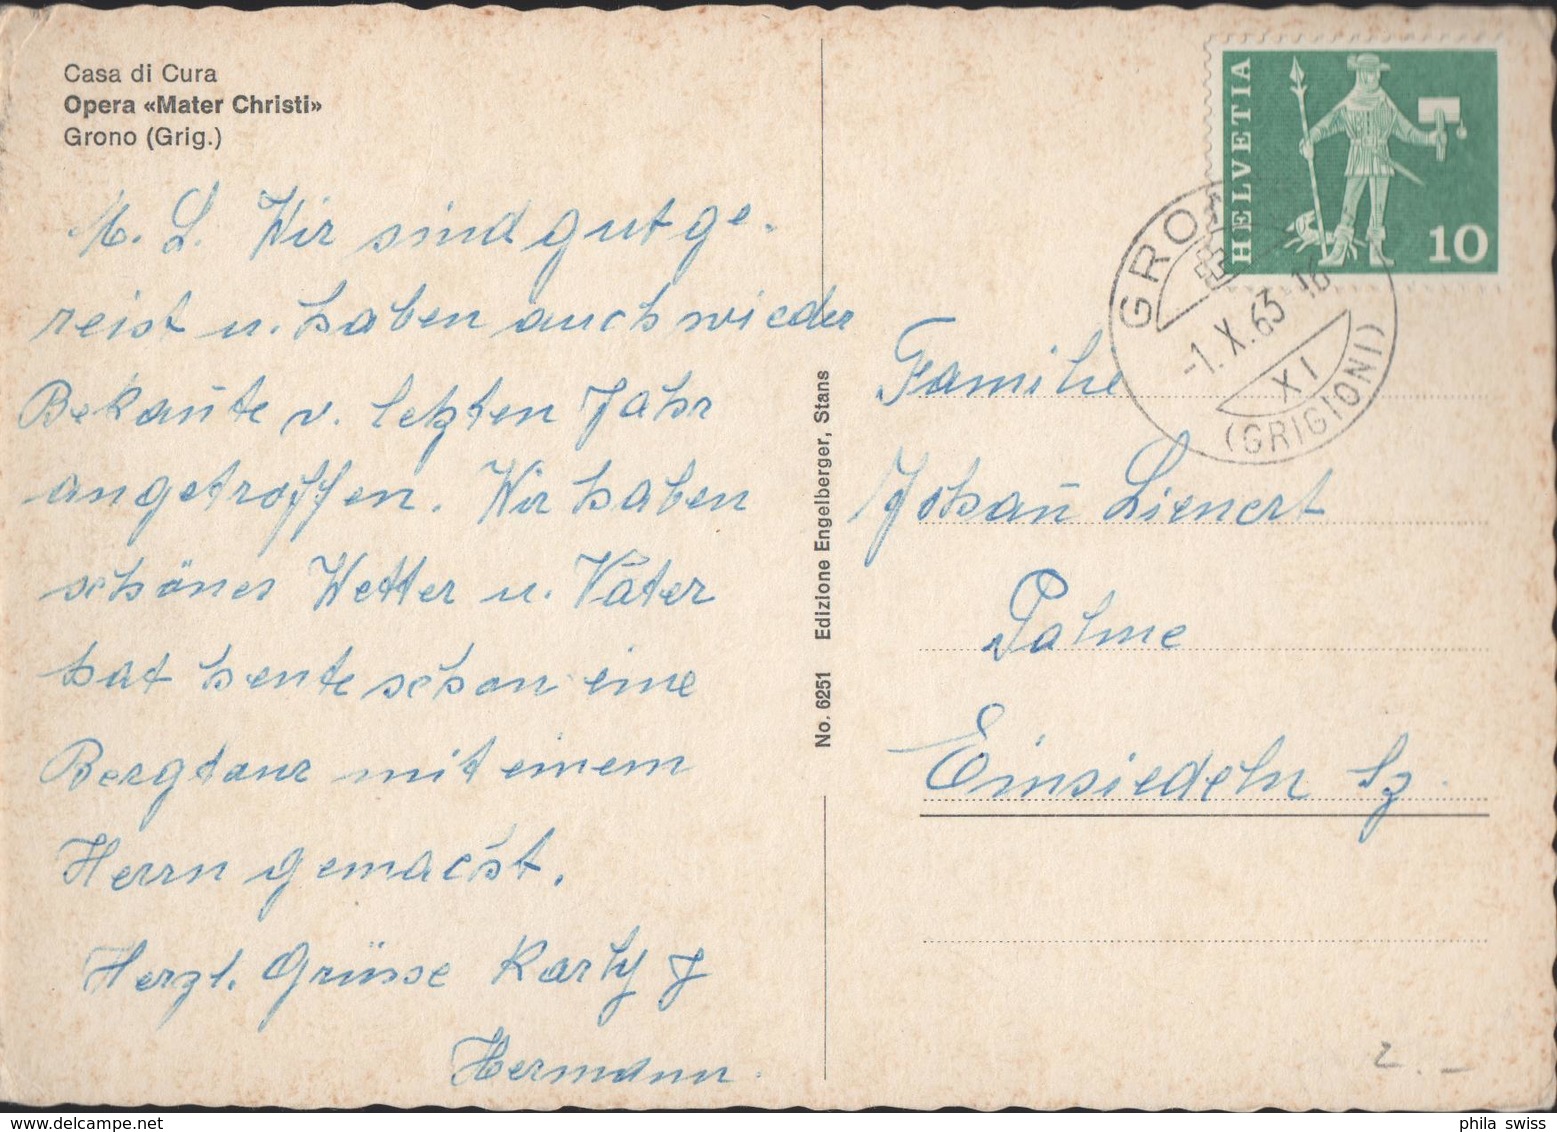 Casa di Cura
Opera «Mater Christi»
Grono (Grig.)
M. L. Wir sind gut ge-
reist u. haben auch wieder
Bekañte v. letzten Jahr
angetroffen. Wir haben
schönes Wetter u. Vater
hat heute schon eine
Bergtour mit einem
Herrn gemacht.
Herzl. Grüsse Karly
Hermann.
No. 6251 Edizione Engelberger, Stans
HELVETIA
10
GRO
-1.X.63-18
XI
(GRIGIONI)
Familie
Johañ Lienert
Palme
Einsiedeln Sz.
2.-
phila swiss